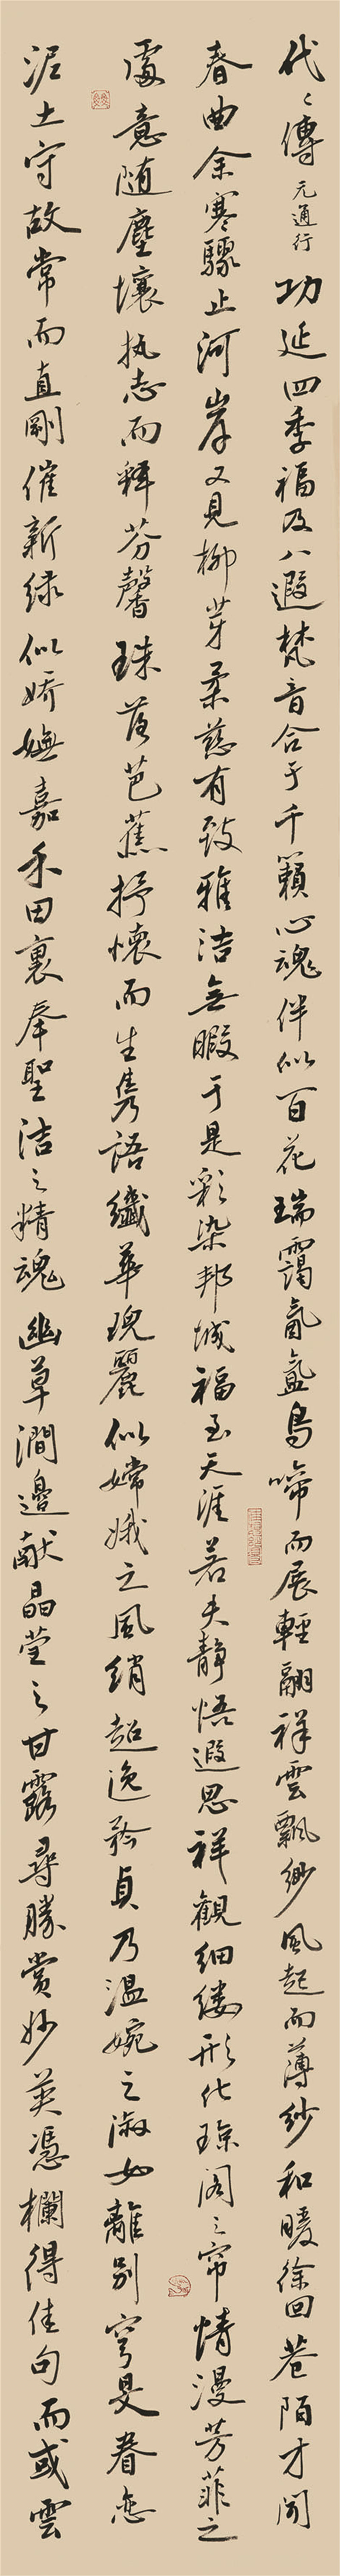 代代傳 元通行 功延四季福及八遐梵音合于千籟心魂伴似百花瑞靄氤氳鳥啼而展輕翮祥雲飄緲風起而薄紗和暖徐回巷陌才聞
春曲余寒驟止河岸又見柳芽柔慈有致雅洁無暇于是彩染邦城福至天涯若夫静悟遐思祥觀細縷形化琼阁之帘情漫芳菲之
處意随塵壤执志而釋芬馨珠落芭蕉抒懷而生隽語纖華瑰麗似嫦娥之風绡超逸矜貞乃温婉之淑女離别穹旻眷恋
泥土守故常而直剛催新绿似娇嫵嘉禾田裏奉聖洁之精魂幽草澗邊献晶莹之甘露尋勝赏妙英憑欄得佳句而或雲